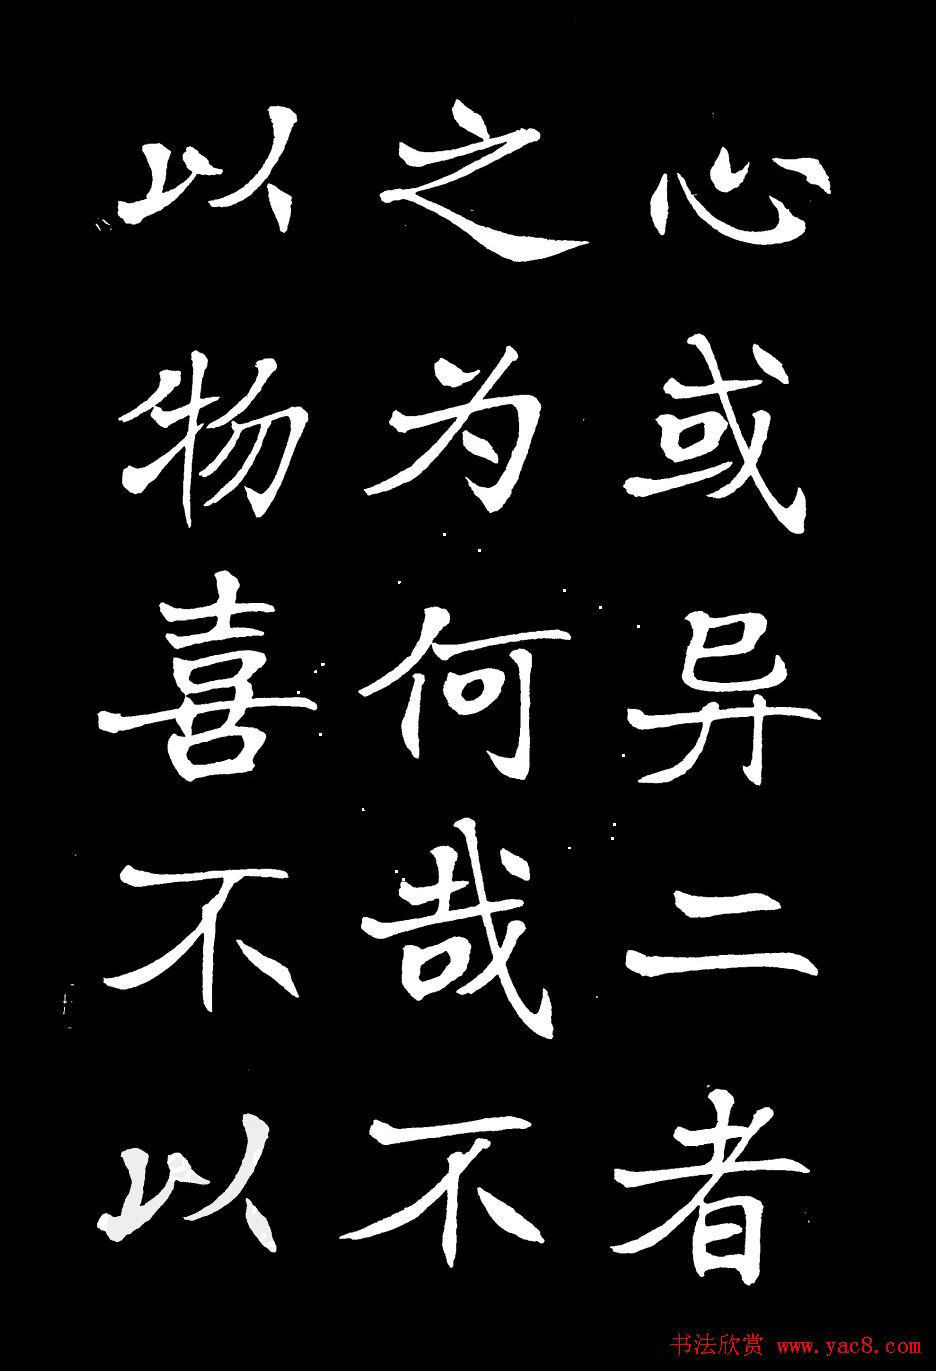 心或异二者
之为何哉不
以物喜不以
书法欣赏 www.yac8.com